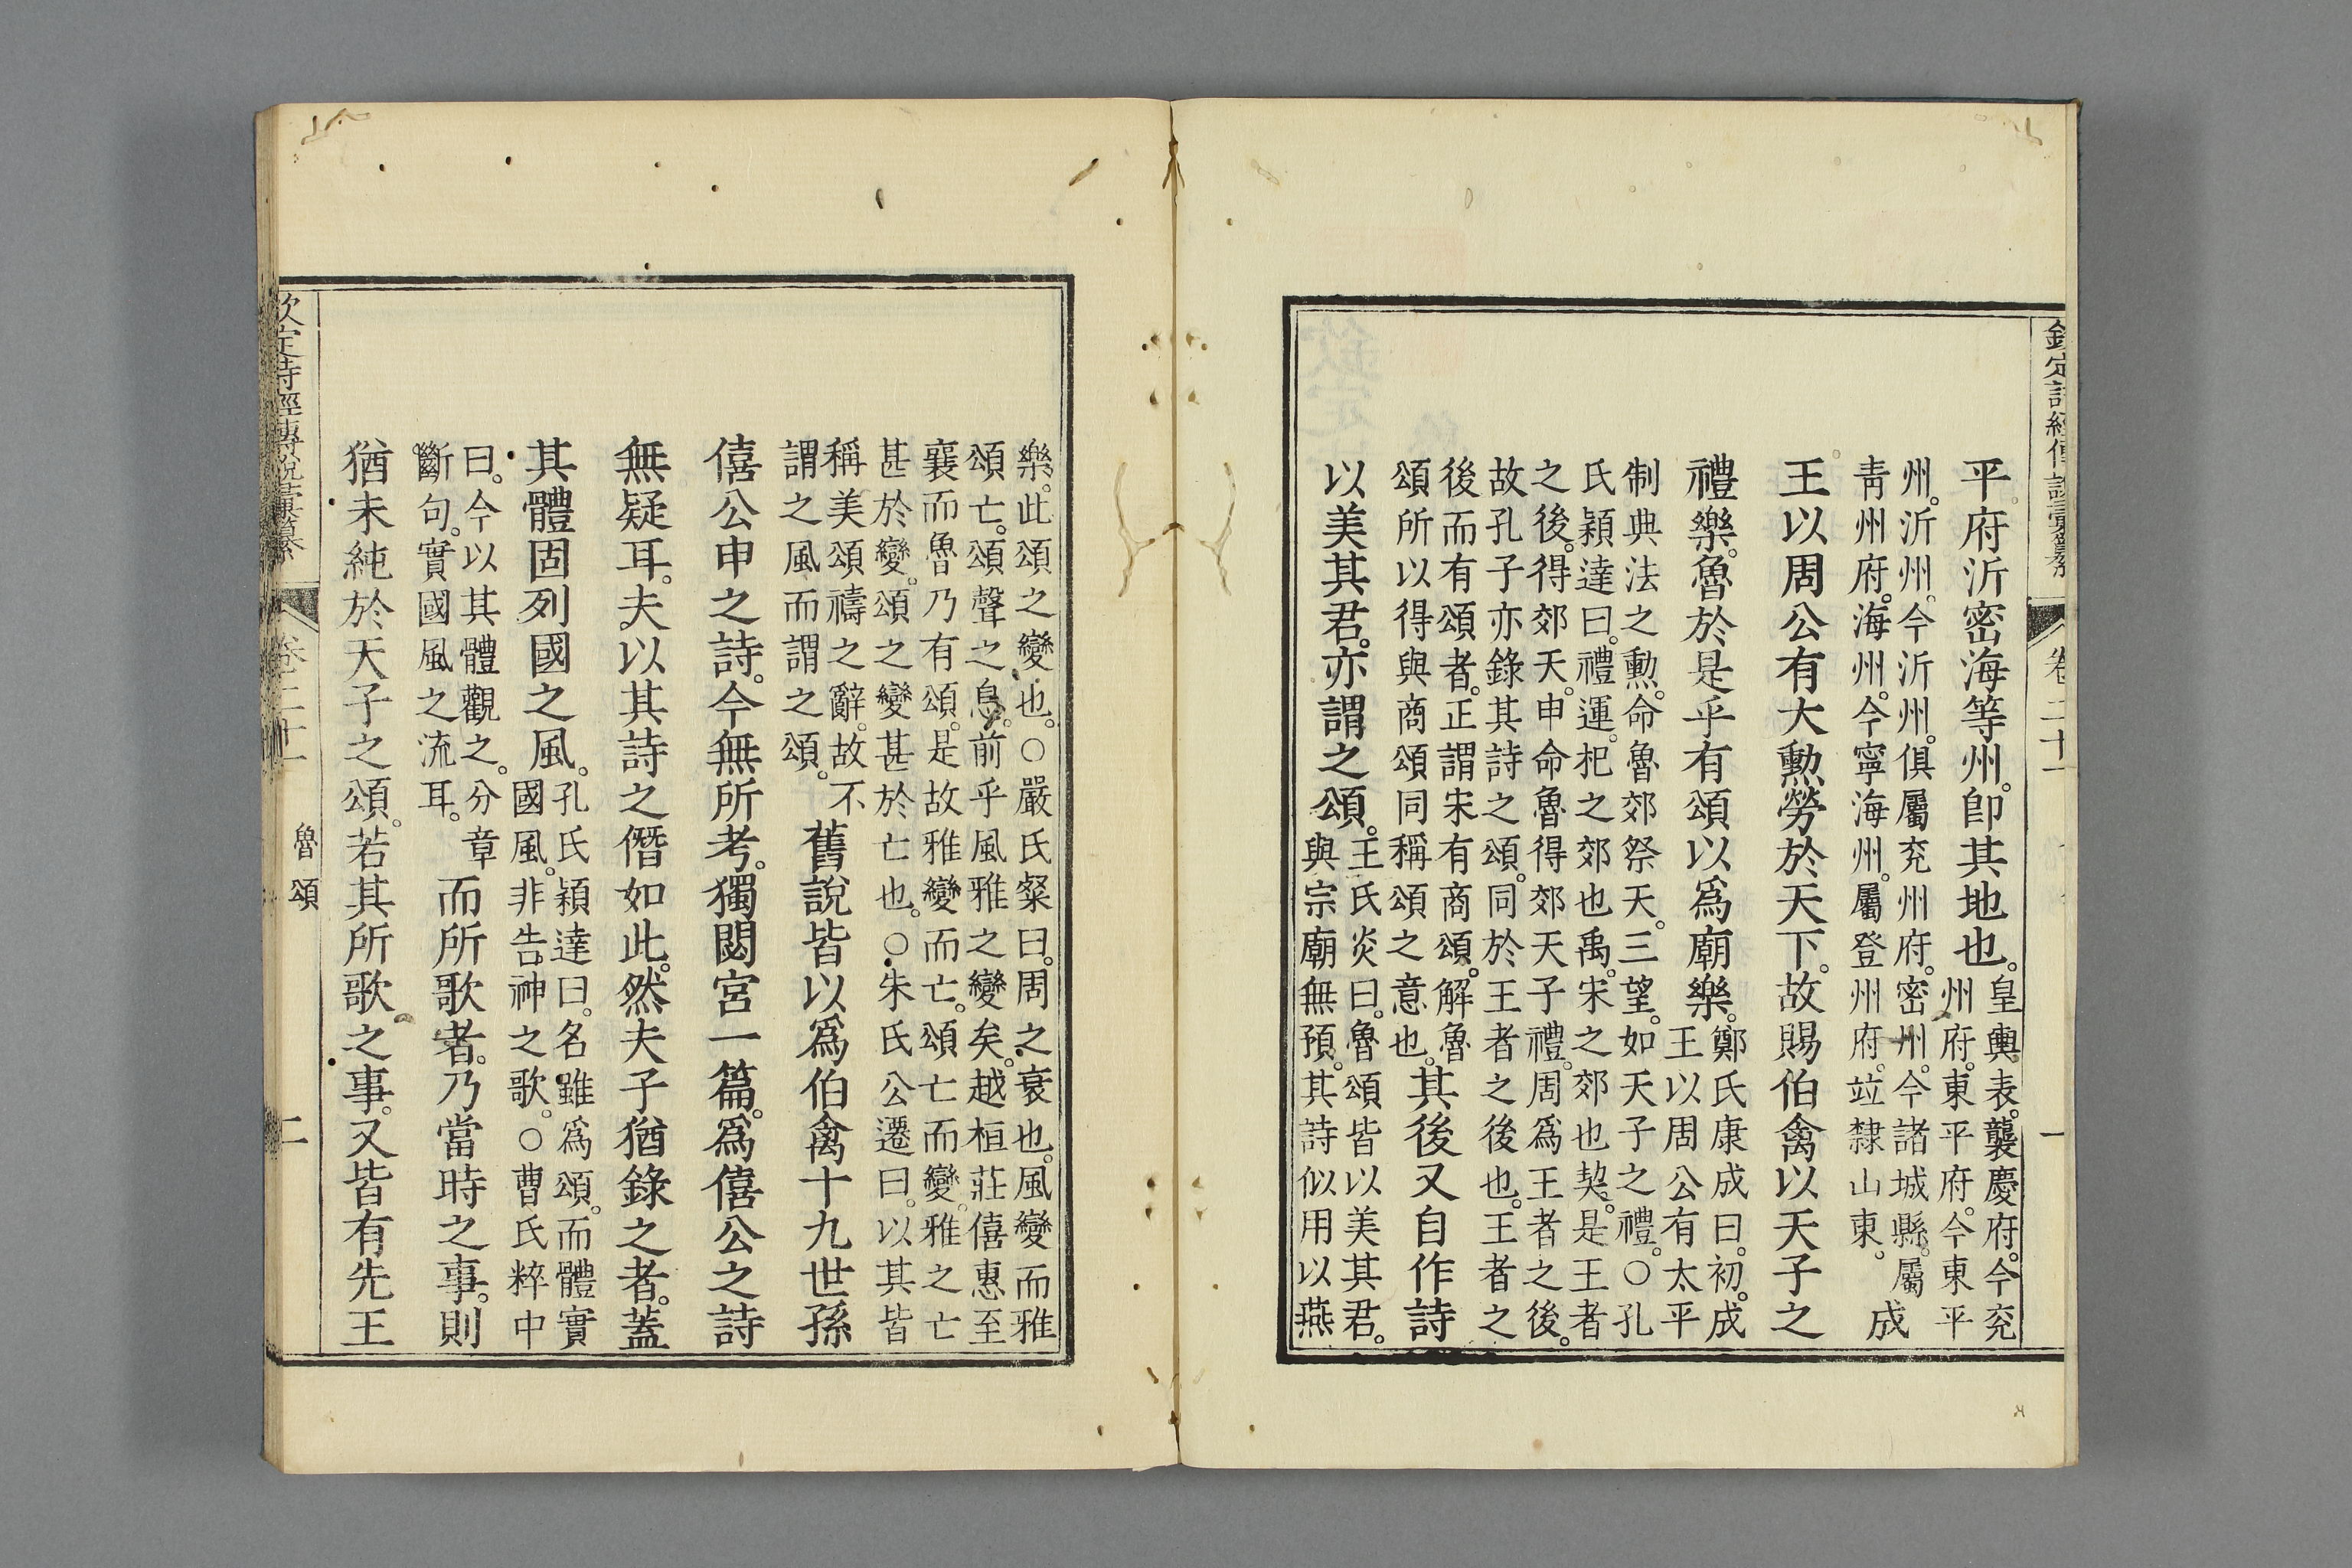 欽定詩經傳說彙纂 卷二十一 一
平府沂密海等州。卽其地也。
皇輿表。襲慶府。今兖
州府。東平府。今東平
州。沂州。今沂州。俱屬兖州府。密州。今諸城縣。屬
靑州府。海州。今寧海州。屬登州府。竝隸山東。
成
王以周公有大勲勞於天下。故賜伯禽以天子之
禮樂。魯於是乎有頌以爲廟樂。
鄭氏康成曰。初。成
王以周公有太平
制典法之勲。命魯郊祭天。三望。如天子之禮。○孔
氏穎達曰。禮運。杞之郊也禹。宋之郊也契。是王者
之後。得郊天。申命魯得郊天子禮。周爲王者之後。
故孔子亦錄其詩之頌。同於王者之後也。王者之
後而有頌者。正謂宋有商頌。解魯
頌所以得與商頌同稱頌之意也。
其後又自作詩
以美其君。亦謂之頌。
王氏炎曰。魯頌皆以美其君。
與宗廟無預。其詩似用以燕
樂。此頌之變也。○嚴氏粲曰。周之衰也。風變而雅
頌亡。頌聲之息。前乎風雅之變矣。越桓莊僖惠至
襄而魯乃有頌。是故雅變而亡。頌亡而變。雅之亡
甚於變。頌之變甚於亡也。○朱氏公遷曰。以其皆
稱美頌禱之辭。故不
謂之風而謂之頌。
舊說皆以爲伯禽十九世孫
僖公申之詩。今無所考。獨閟宮一篇。爲僖公之詩
無疑耳。夫以其詩之僭如此。然夫子猶錄之者。蓋
其體固列國之風。
孔氏穎達曰。名雖爲頌。而體實
國風。非告神之歌。○曹氏粹中
曰。今以其體觀之。分章
斷句。實國風之流耳。
而所歌者。乃當時之事。則
猶未純於天子之頌。若其所歌之事。又皆有先王
欽定詩經傳說彙纂 卷二十一 魯頌 二